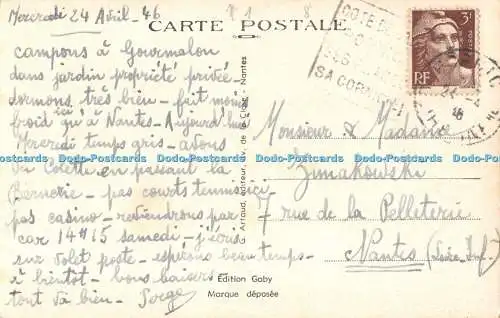 Mercredi 24 Avril - 46
CARTE POSTALE
campons à Gourmalon
dans jardin propriété privée -
dormons très bien - fait moins
froid qu'à Nantes - Aujourd'hui
Mercredi temps gris - avons
vu Colette en passant la
Bernerie - pas courts tennis ni
pas casino - reviendrons par
car 14H15 samedi - j'écris
sur volet poste - espérons beau temps -
à bientôt - bons baisers -
tout va bien - Serge
G. Artaud, éditeur, de la Nantes
COTE DE
SA CORNICHE
3F
POSTES
RF
Monsieur & Madame
Zimakowski
7 rue de la Pelleterie
Nantes (Loire Inf.)
Edition Gaby
Marque déposée
Dodo-Postcards Dodo-Postcards Dodo-Postcards Dodo-Postcards Dodo-Postcards